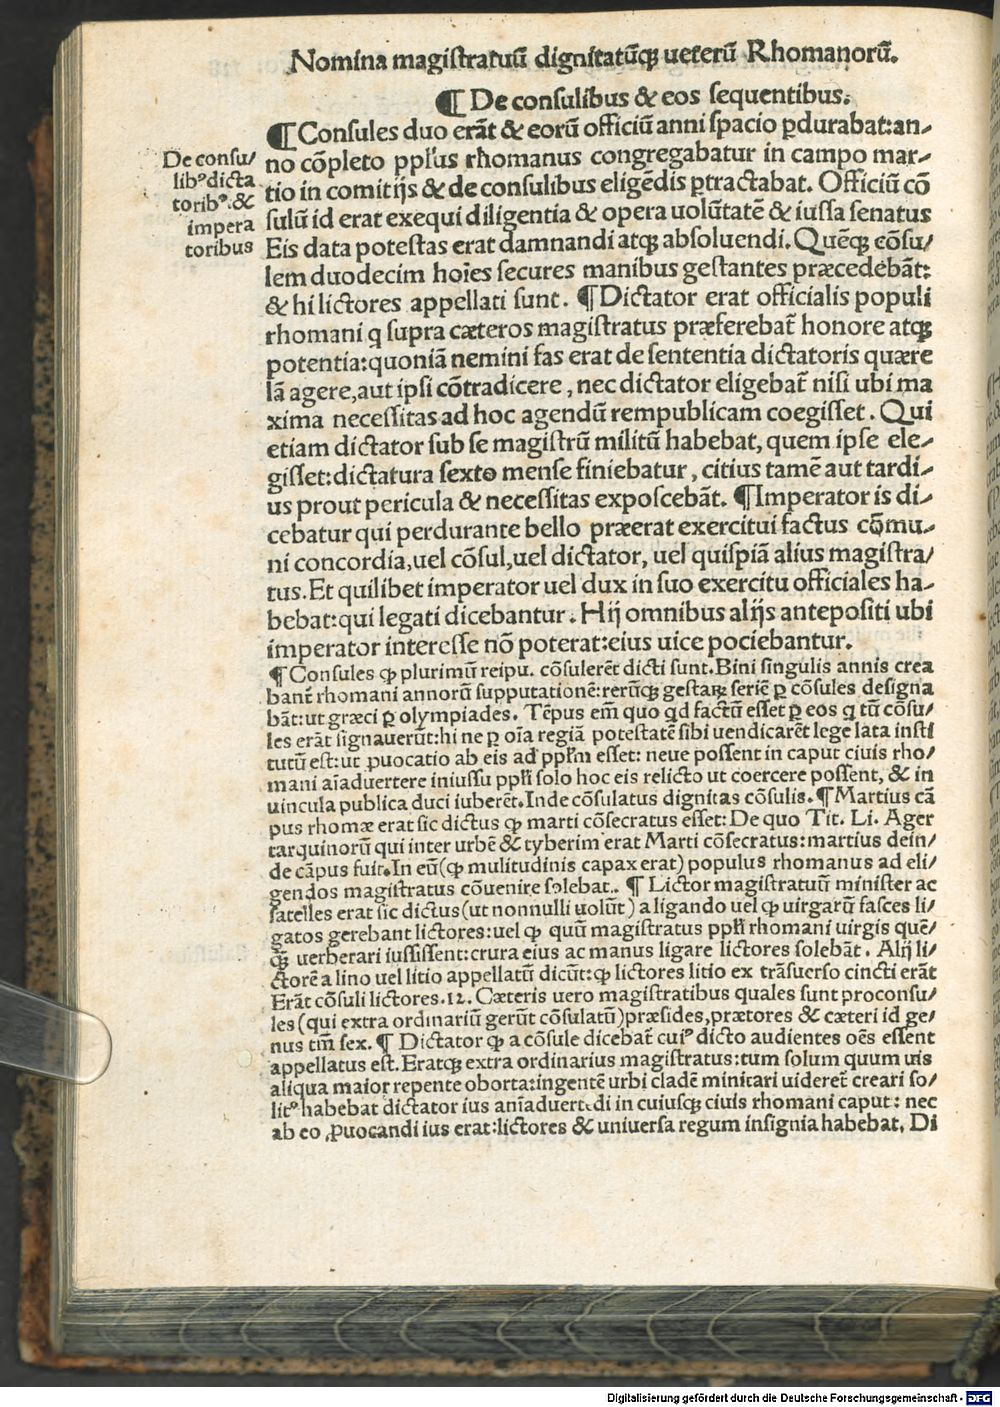 Nomina magiſtratuū dignitatūqꝫ ueterū Rhomanorū.
¶ De conſulibus & eos ſequentibus.
¶ Conſules duo erāt & eorū officiū anni ſpacio ꝑdurabat: an-
no cōpleto ppl'us rhomanus congregabatur in campo mar-
tio in comitijs & de conſulibus eligēdis ꝑtractabat. Officiū cō
ſulū id erat exequi diligentia & opera uolūtatē & iuſſa ſenatus
Eis data poteſtas erat damnandi atqꝫ abſoluendi. Quēqꝫ cōſu/
lem duodecim hoīes ſecures manibus geſtantes præcedebāt:
& hi lictores appellati ſunt. ¶ Dictator erat officialis populi
rhomani q ſupra cæteros magiſtratus præferebat̄ honore atqꝫ
potentia: quoniā nemini fas erat de ſententia dictatoris quære
lā agere, aut ipſi cōtradicere, nec dictator eligebat̄ niſi ubi ma
xima neceſſitas ad hoc agendū rempublicam coegiſſet. Qui
etiam dictator ſub ſe magiſtrū militū habebat, quem ipſe ele-
giſſet: dictatura ſexto menſe finiebatur, citius tamē aut tardi-
us prout pericula & neceſſitas expoſcebāt. ¶ Imperator is di-
cebatur qui perdurante bello præerat exercitui factus cōmu-
ni concordia, uel cōſul, uel dictator, uel quiſpiā alius magiſtra/
tus. Et quilibet imperator uel dux in ſuo exercitu officiales ha-
bebat: qui legati dicebantur. Hij omnibus alijs antepoſiti ubi
imperator intereſſe nō poterat: eius uice pociebantur.
De conſu/
libꝰ dicta
toribꝰ. &
impera
toribus
¶ Conſules ꝙ plurimū reipu. cōſulerēt dicti ſunt. Bini ſingulis annis crea
bant̄ rhomani annorū ſupputationē: rerūqꝫ geſtaꝝ ſeriē ꝑ cōſules deſigna
bāt: ut græci ꝑ olympiades. Tēpus em̄ quo qd factū eſſet ꝑ eos q tū cōſu/
les erāt ſignauerūt: hi ne ꝑ oīa regiā poteſtatē ſibi uendicarēt lege lata inſti
tutū eſt: ut ꝓuocatio ab eis ad ppl'm eſſet: neue poſſent in caput ciuis rho/
mani aīaduertere iniuſſu ppl'i ſolo hoc eis relicto ut coercere poſſent, & in
uincula publica duci iuberēt. Inde cōſulatus dignitas cōſulis. ¶ Martius cā
pus rhomæ erat ſic dictus ꝙ marti cōſecratus eſſet: De quo Tit. Li. Ager
tarquinorū qui inter urbē & tyberim erat Marti cōſecratus: martius dein/
de cāpus fuit. In eū (ꝙ mulitudinis capax erat) populus rhomanus ad eli/
gendos magiſtratus cōuenire ſolebat. ¶ Lictor magiſtratuū miniſter ac
ſatelles erat ſic dictus (ut nonnulli uolūt) a ligando uel ꝙ uirgarū faſces li/
gatos gerebant lictores: uel ꝙ quū magiſtratus ppl'i rhomani uirgis quē/
qꝫ uerberari iuſſiſſent: crura eius ac manus ligare lictores ſolebāt. Alij li/
ctorē a lino uel litio appellatū dicūt: ꝙ lictores litio ex trāſuerſo cincti erāt
Erāt cōſuli lictores. 12. Cæteris uero magiſtratibus quales ſunt proconſu/
les (qui extra ordinariū gerūt cōſulatū) præſides, prætores & cæteri id ge/
nus tm̄ ſex. ¶ Dictator ꝙ a cōſule dicebat̄ cuiꝰ dicto audientes oēs eſſent
appellatus eſt. Eratqꝫ extra ordinarius magiſtratus: tum ſolum quum uis
aliqua maior repente oborta: ingentē urbi cladē minitari uideret̄ creari ſo/
litꝰ habebat dictator ius anīaduertēdi in cuiuſqꝫ ciuis rhomani caput: nec
ab eo ꝓuocandi ius erat: lictores & uniuerſa regum inſignia habebat. Di
Digitalisierung gefördert durch die Deutsche Forschungsgemeinschaft - DFG